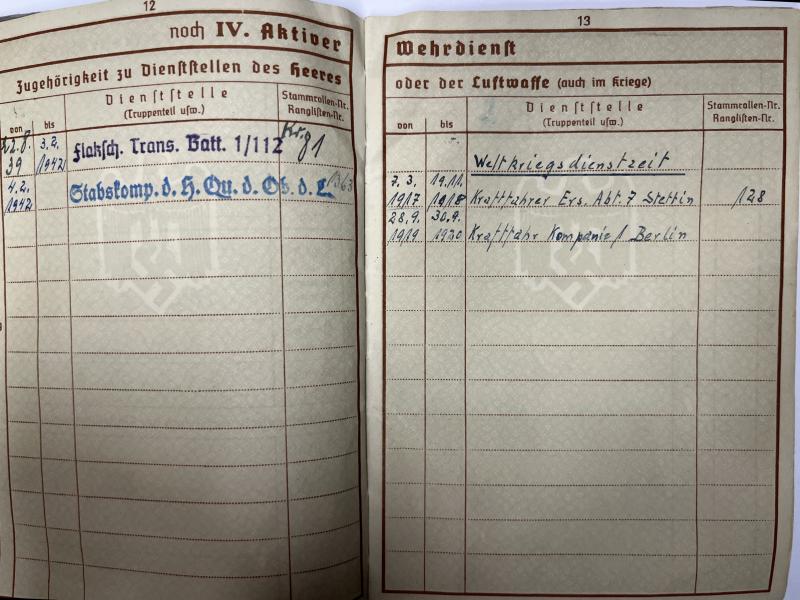 12
noch IV. Aktiver
Zugehörigkeit zu Dienststellen des Heeres
von
bis
Dienststelle
(Truppenteil usw.)
Stammrollen-Nr.
Ranglisten-Nr.
22.8.
39
3.2.
1942
Flaksch. Trans. Batt. 1/112
Krg 1
4.2.
1942
Stabskomp. d. H. Qu. d. Ob. d. L
363
13
Wehrdienst
oder der Luftwaffe (auch im Kriege)
von
bis
Dienststelle
(Truppenteil usw.)
Stammrollen-Nr.
Ranglisten-Nr.
Weltkriegsdienstzeit
7.3.
1917
19.11.
1918
Kraftfahrer Ers. Abt. 7 Stettin
128
28.9.
1919
30.9.
1920
Kraftfahr Kompanie / Berlin